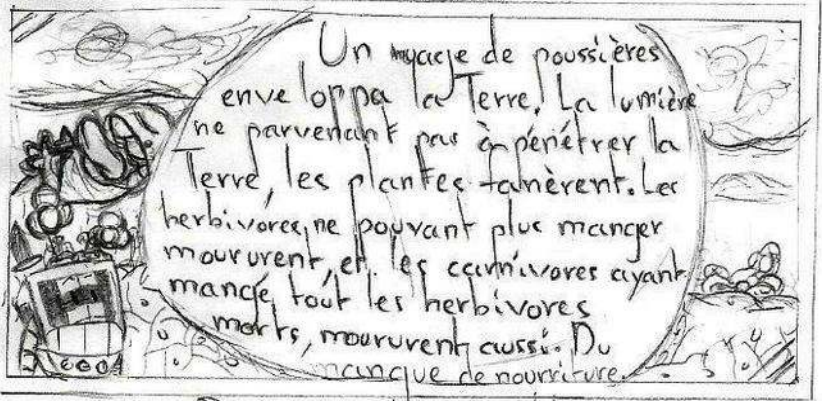 Un nuage de poussières
enveloppa la Terre. La lumière
ne parvenant pas à pénétrer la
Terre, les plantes fanèrent. Les
herbivores, ne pouvant plus manger
moururent, et les carnivores ayant
mangé tout les herbivores
morts, moururent aussi. Du
manque de nourriture.